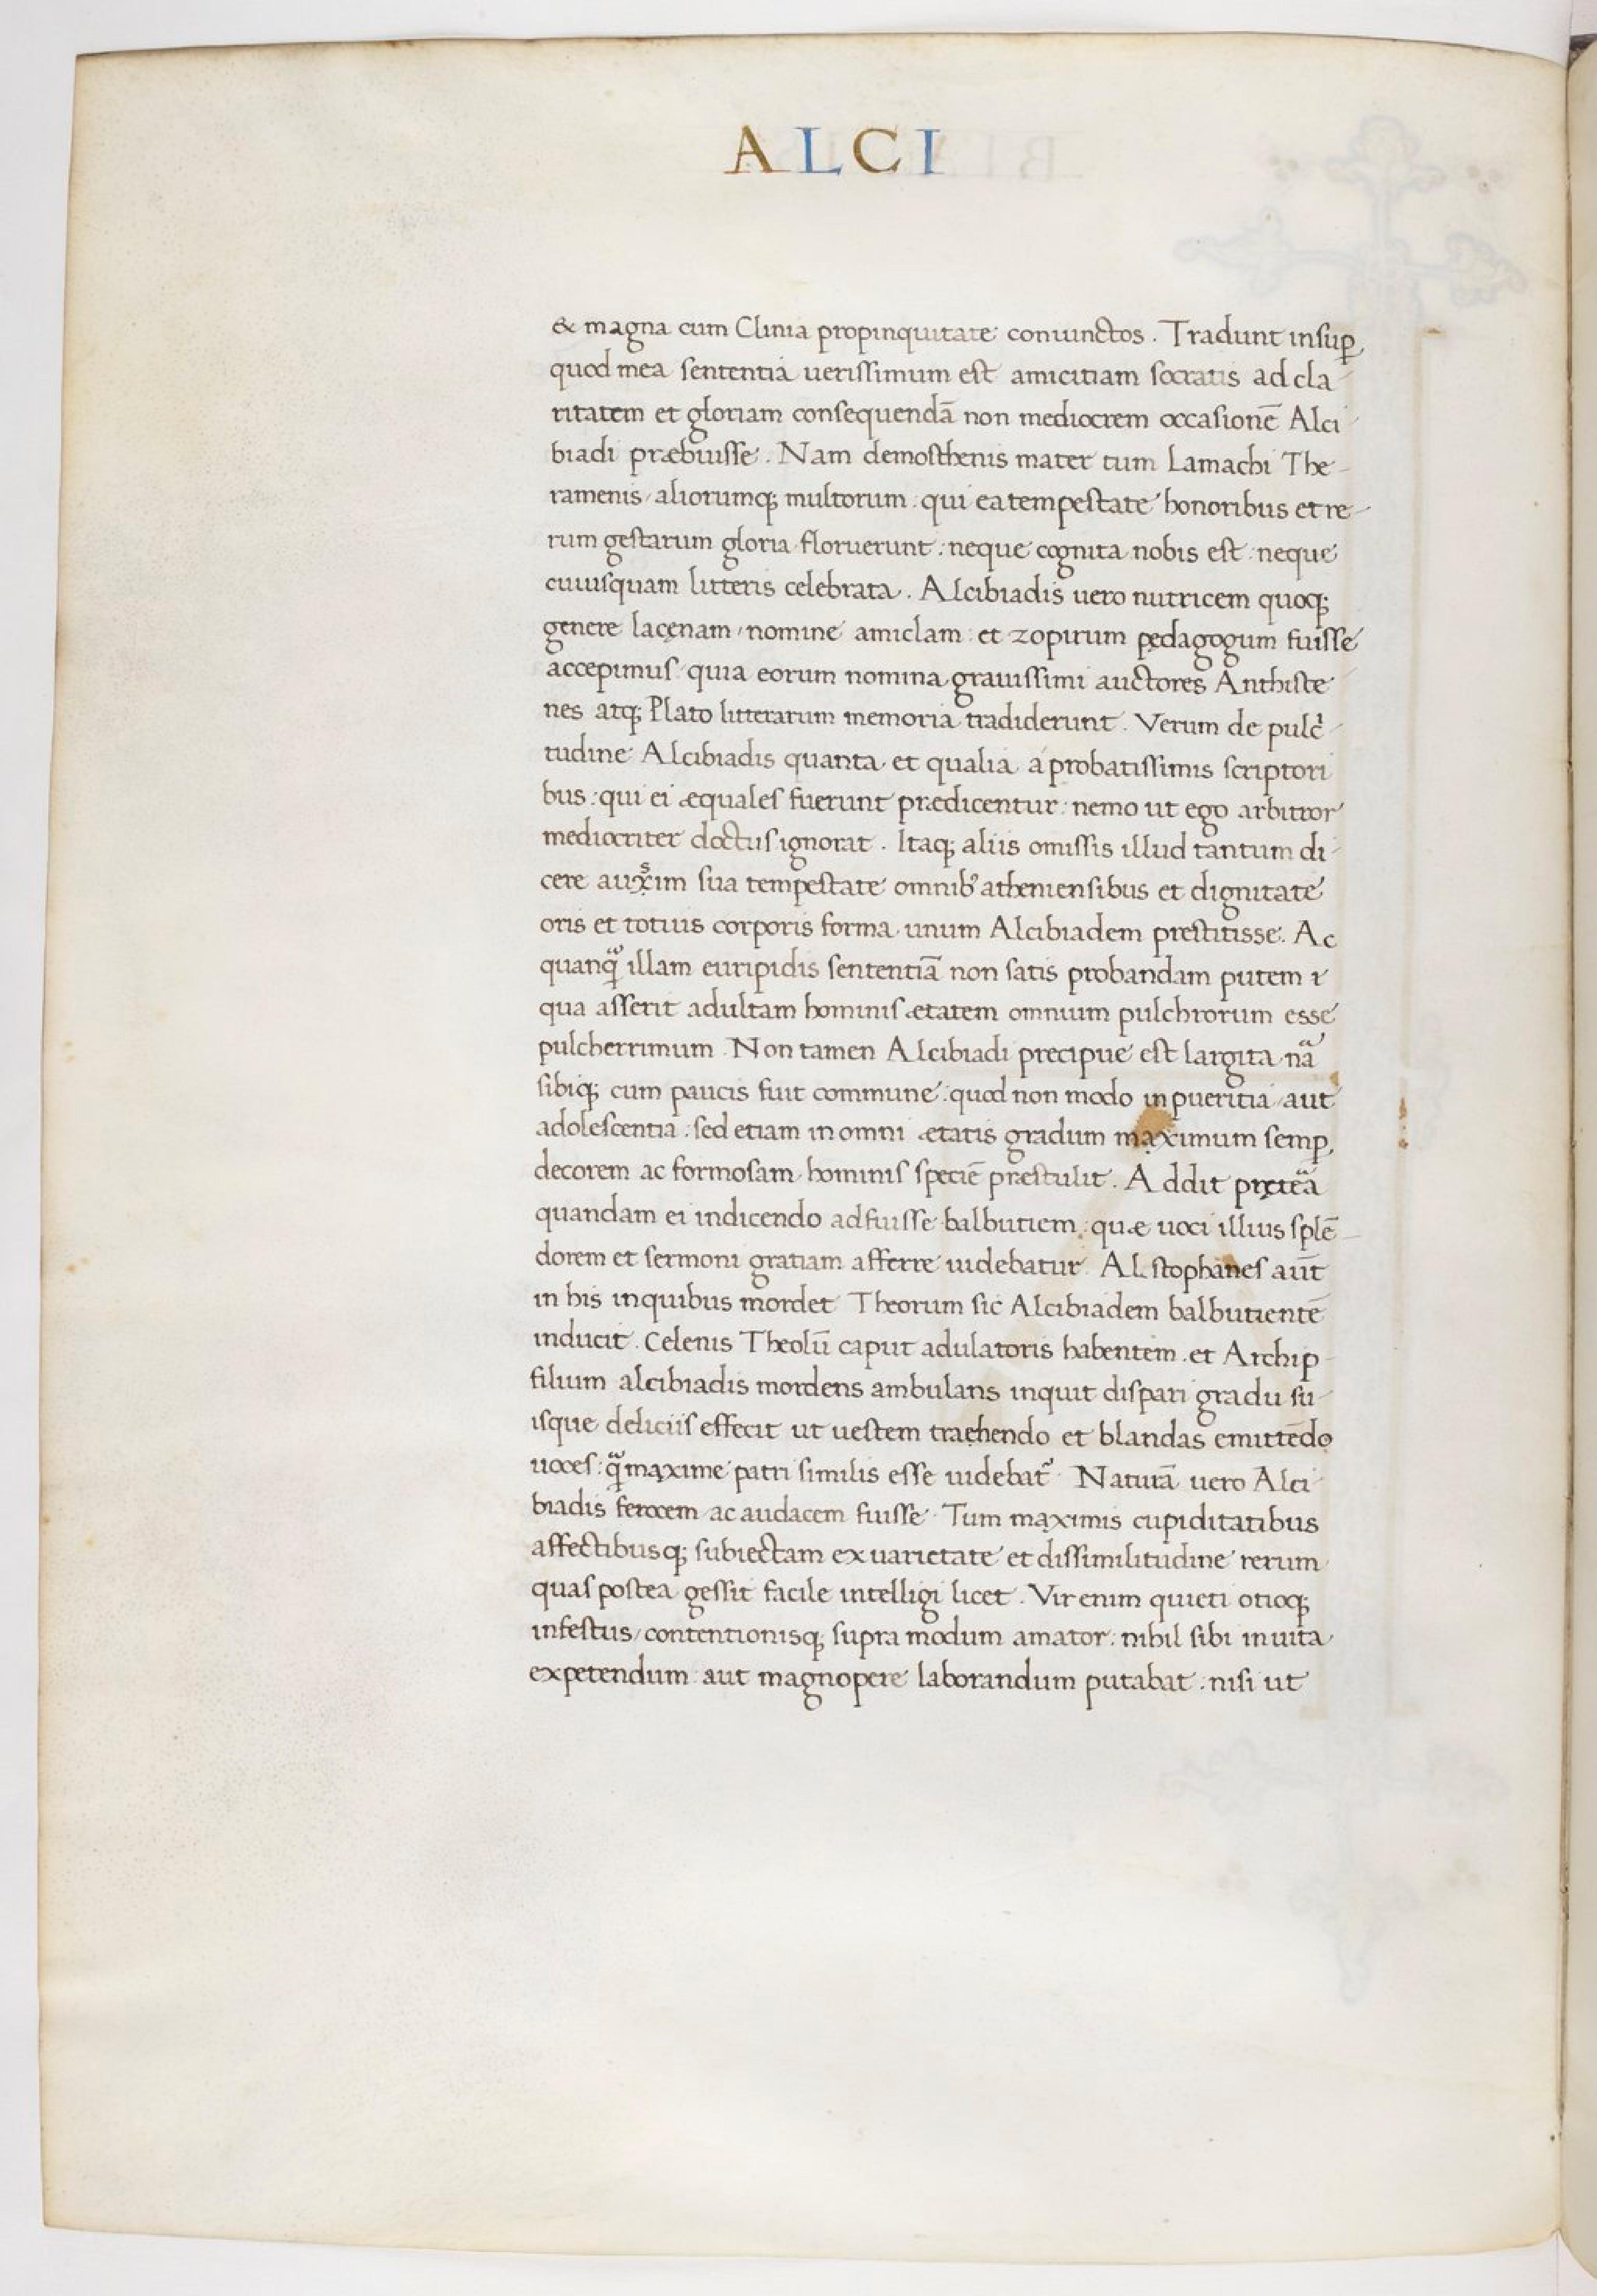 ALCI
& magna cum Clinia propinquitate coniunctos. Tradunt insuꝑ
quod mea sententia uerissimum est amicitiam socratis ad cla-
ritatem et gloriam consequendā non mediocrem occasionē Alci-
biadi præbuisse. Nam demosthenis mater tum Lamachi The-
ramenis, aliorumq; multorum: qui ea tempestate honoribus et re-
rum gestarum gloria floruerunt: neque cognita nobis est: neque
cuiusquam litteris celebrata. Alcibiadis uero nutricem quoq;
genere lacęnam, nomine amiclam: et zopirum pędagogum fuisse
accepimus quia eorum nomina grauissimi auctores Anthiste-
nes atq; Plato litterarum memoria tradiderunt. Verum de pulc̉-
tudine Alcibiadis quanta et qualia á probatissimis scriptori
bus: qui ei æquales fuerunt prædicentur: nemo ut ego arbitror
mediocriter doctus ignorat. Itaq; aliis omissis illud tantum di-
cere auxͣim sua tempestate omnibꝰ atheniensibus et dignitate
oris et totius corporis forma unum Alcibiadem prestitisse. Ac
quanqͣ illam euripidis sententiā non satis probandam putem ī
qua asserit adultam hominis ætatem omnium pulchrorum esse
pulcherrimum. Non tamen Alcibiadi precipue est largita nͣa
sibiq; cum paucis fuit commune: quod non modo in pueritia, aut
adolescentia: sed etiam in omni ætatis gradum mąximum semꝑ
decorem ac formosam hominis speciē præstulit. Addit pręteͣa
quandam ei indicendo adfuisse balbutiem: quæ uoci illius splē-
dorem et sermoni gratiam afferre uidebatur. Alistophanes aūt
in his inquibus mordet Theorum sic Alcibiadem balbutientē
inducit. Celenis Theolū caput adulatoris habentem. et Archip-
filium alcibiadis mordens ambulans inquit dispari gradu su-
isque deliciis effecit ut uestem traehendo et blandas emittēdo
uoces: qͣ mąxime patri similis esse uidebat᷑. Naturā uero Alci-
biadis ferocem ac audacem fuisse. Tum mąximis cupiditatibus
affectibusq; subiectam ex uarietate et dissimilitudine rerum
quas postea gessit facile intelligi licet. Vir enim quieti otioq;
infestus, contentionisq; supra modum amator: nihil sibi in uita
expetendum aut magnopere laborandum putabat: nisi ut